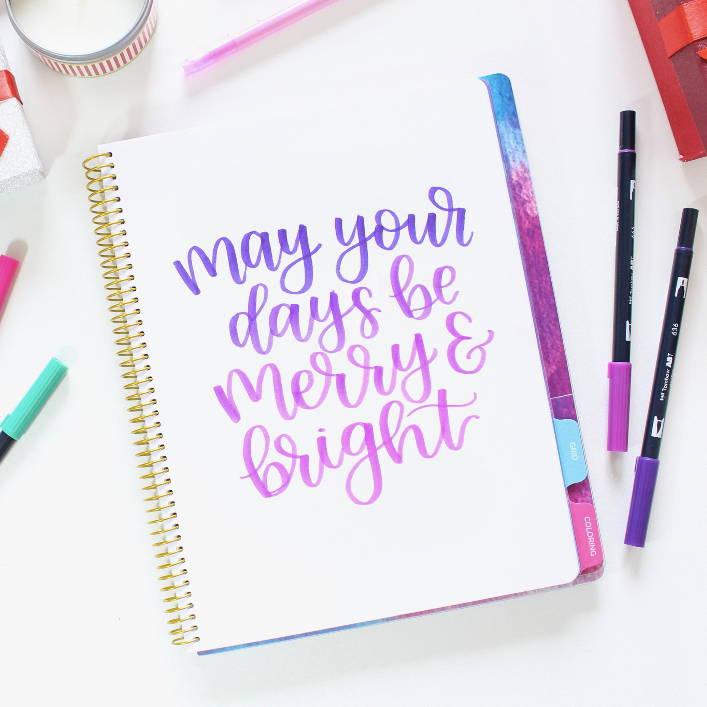 may your
days be
merry &
bright
GRID
COLORING
636
ABT